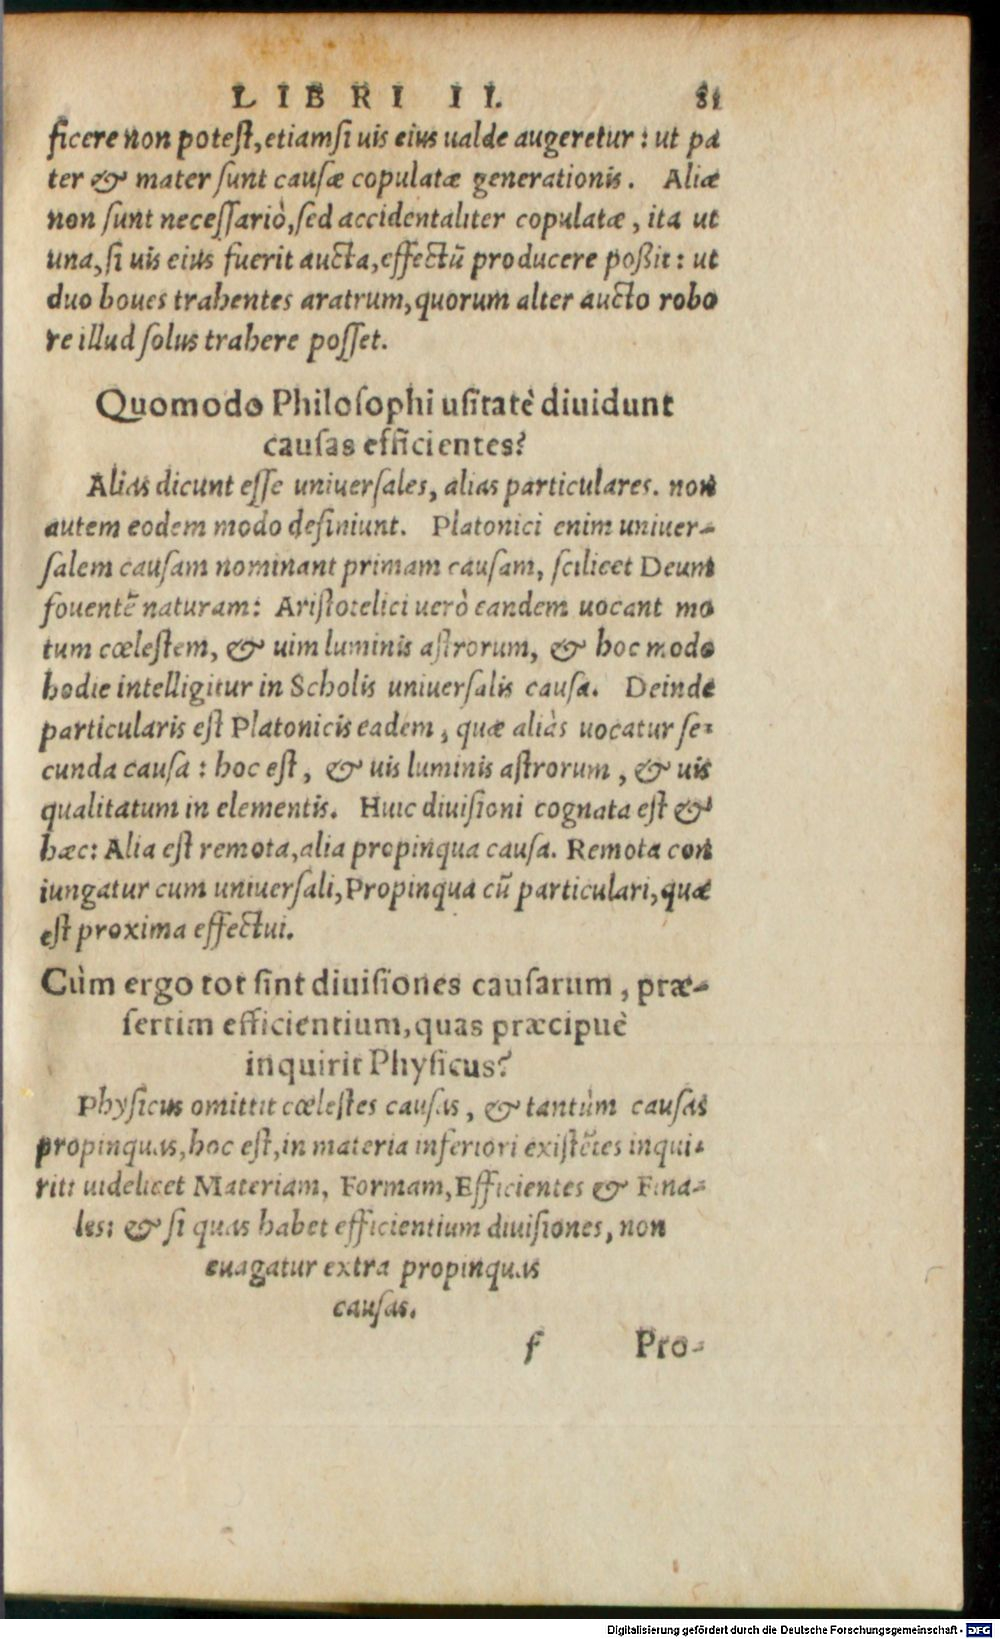 LIBRI II. 81
ficere non potest, etiamsi uis eius ualde augeretur: ut pa
ter & mater sunt causæ copulatæ generationis. Aliæ
non sunt necessariò, sed accidentaliter copulatæ, ita ut
una, si uis eius fuerit aucta, effectũ producere poßit: ut
duo boues trahentes aratrum, quorum alter aucto robo
re illud solus trahere posset.
Quomodo Philosophi usitatè diuidunt
causas efficientes?
Alias dicunt esse uniuersales, alias particulares. non
autem eodem modo definiunt. Platonici enim uniuer-
salem causam nominant primam causam, scilicet Deum
fouentẽ naturam: Aristotelici uerò eandem uocant mo
tum cœlestem, & uim luminis astrorum, & hoc modo
hodie intelligitur in Scholis uniuersalis causa. Deinde
particularis est Platonicis eadem, quæ aliàs uocatur se-
cunda causa: hoc est, & uis luminis astrorum, & uis
qualitatum in elementis. Huic diuisioni cognata est &
hæc: Alia est remota, alia propinqua causa. Remota con
iungatur cum uniuersali, Propinqua cũ particulari, quæ
est proxima effectui.
Cùm ergo tot sint diuisiones causarum, præ-
sertim efficientium, quas præcipuè
inquirit Physicus?
Physicus omittit cœlestes causas, & tantùm causas
propinquas, hoc est, in materia inferiori existẽtes inqui-
rit: uidelicet Materiam, Formam, Efficientes & Fina-
les: & si quas habet efficientium diuisiones, non
euagatur extra propinquas
causas.
f Pro-
Digitalisierung gefördert durch die Deutsche Forschungsgemeinschaft - DFG